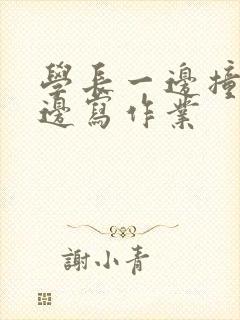 學長一邊撞
邊寫作業
謝小青